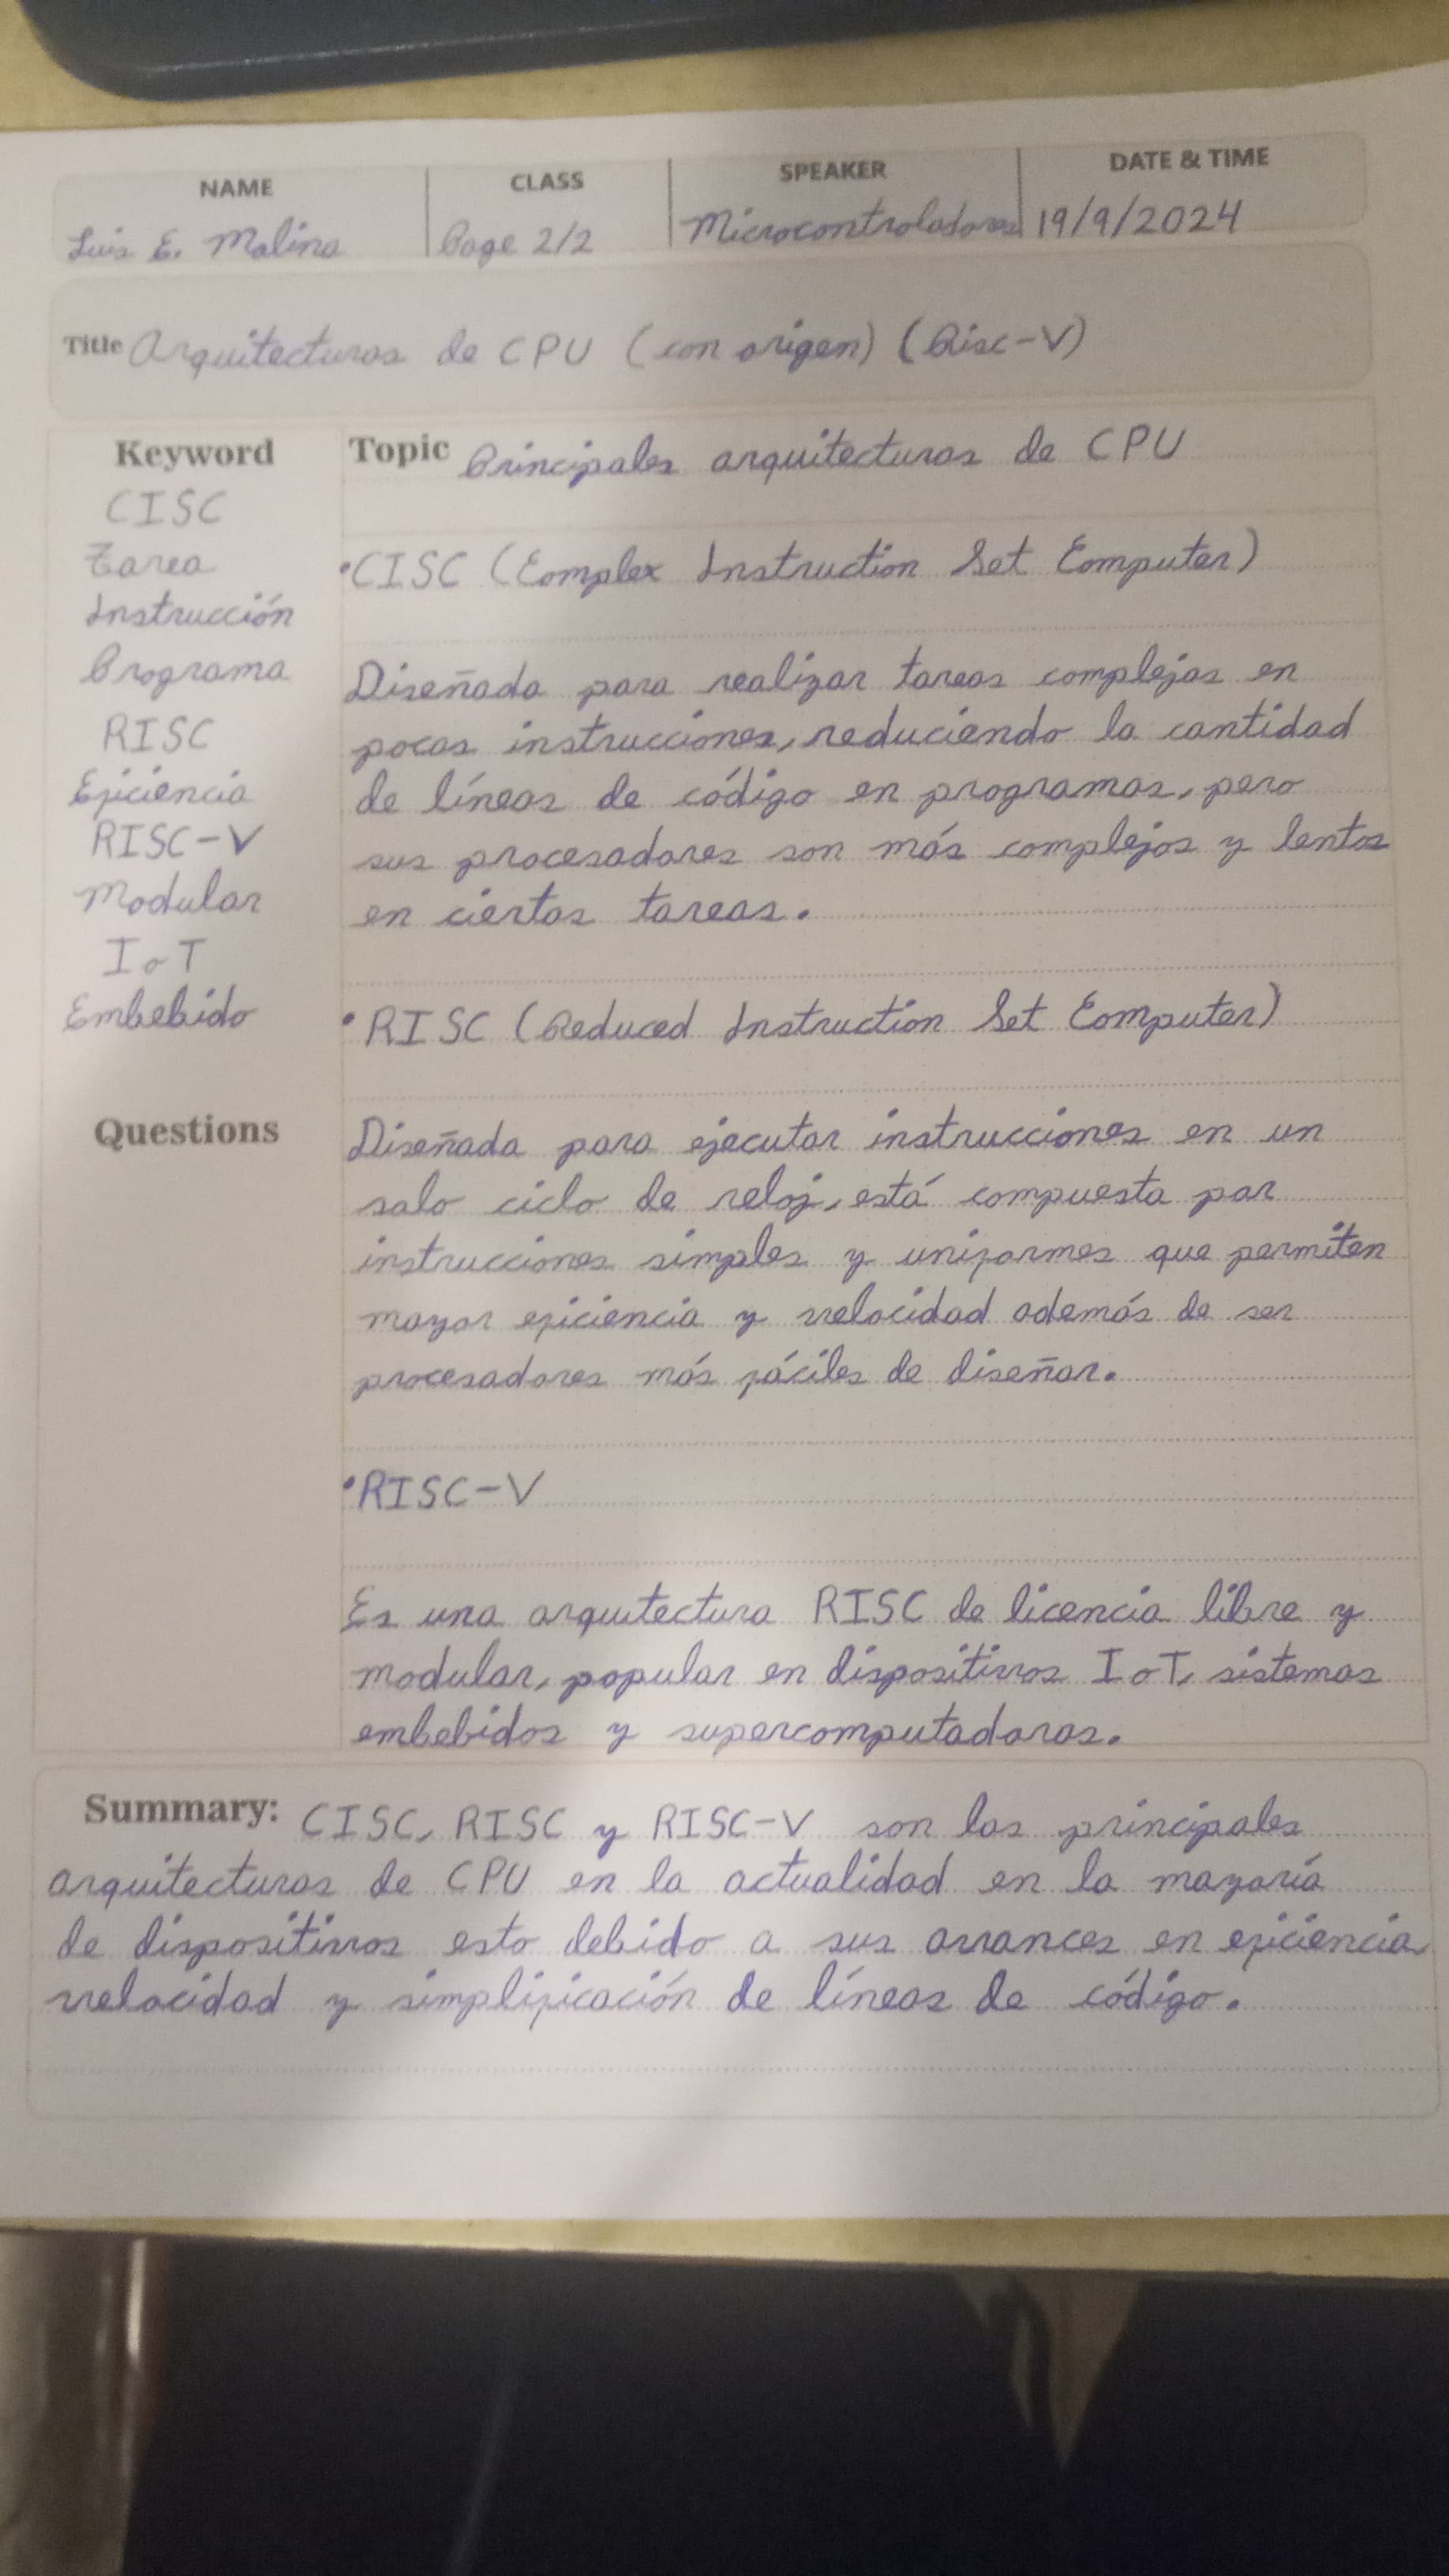 NAME CLASS SPEAKER DATE & TIME
Luis E. Molina Page 2/2 Microcontroladores 19/9/2024
Title Arquitecturas de CPU (con origen) (Risc-V)
Keyword
CISC
Tarea
Instrucción
Programa
RISC
Eficiencia
RISC-V
Modular
IoT
Embebido
Questions
Topic Principales arquitecturas de CPU
•CISC (Complex Instruction Set Computer)
Diseñada para realizar tareas complejas en
pocas instrucciones, reduciendo la cantidad
de líneas de código en programas, pero
sus procesadores son más complejos y lentos
en ciertas tareas.
•RISC (Reduced Instruction Set Computer)
Diseñada para ejecutar instrucciones en un
solo ciclo de reloj, está compuesta por
instrucciones simples y uniformes que permiten
mayor eficiencia y velocidad además de ser
procesadores más fáciles de diseñar.
•RISC-V
Es una arquitectura RISC de licencia libre y
modular, popular en dispositivos IoT, sistemas
embebidos y supercomputadoras.
Summary: CISC, RISC y RISC-V son las principales
arquitecturas de CPU en la actualidad en la mayoría
de dispositivos esto debido a sus avances en eficiencia,
velocidad y simplificación de líneas de código.